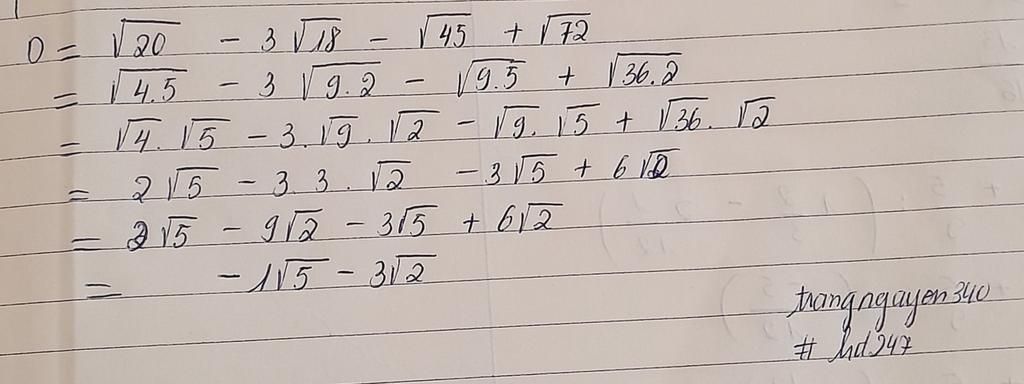 D = √20 - 3√18 - √45 + √72
= √4.5 - 3√9.2 - √9.5 + √36.2
= √4.√5 - 3.√9.√2 - √9.√5 + √36.√2
= 2√5 - 3.3.√2 - 3√5 + 6√2
= 2√5 - 9√2 - 3√5 + 6√2
= -1√5 - 3√2
trangnguyen340
# hd247